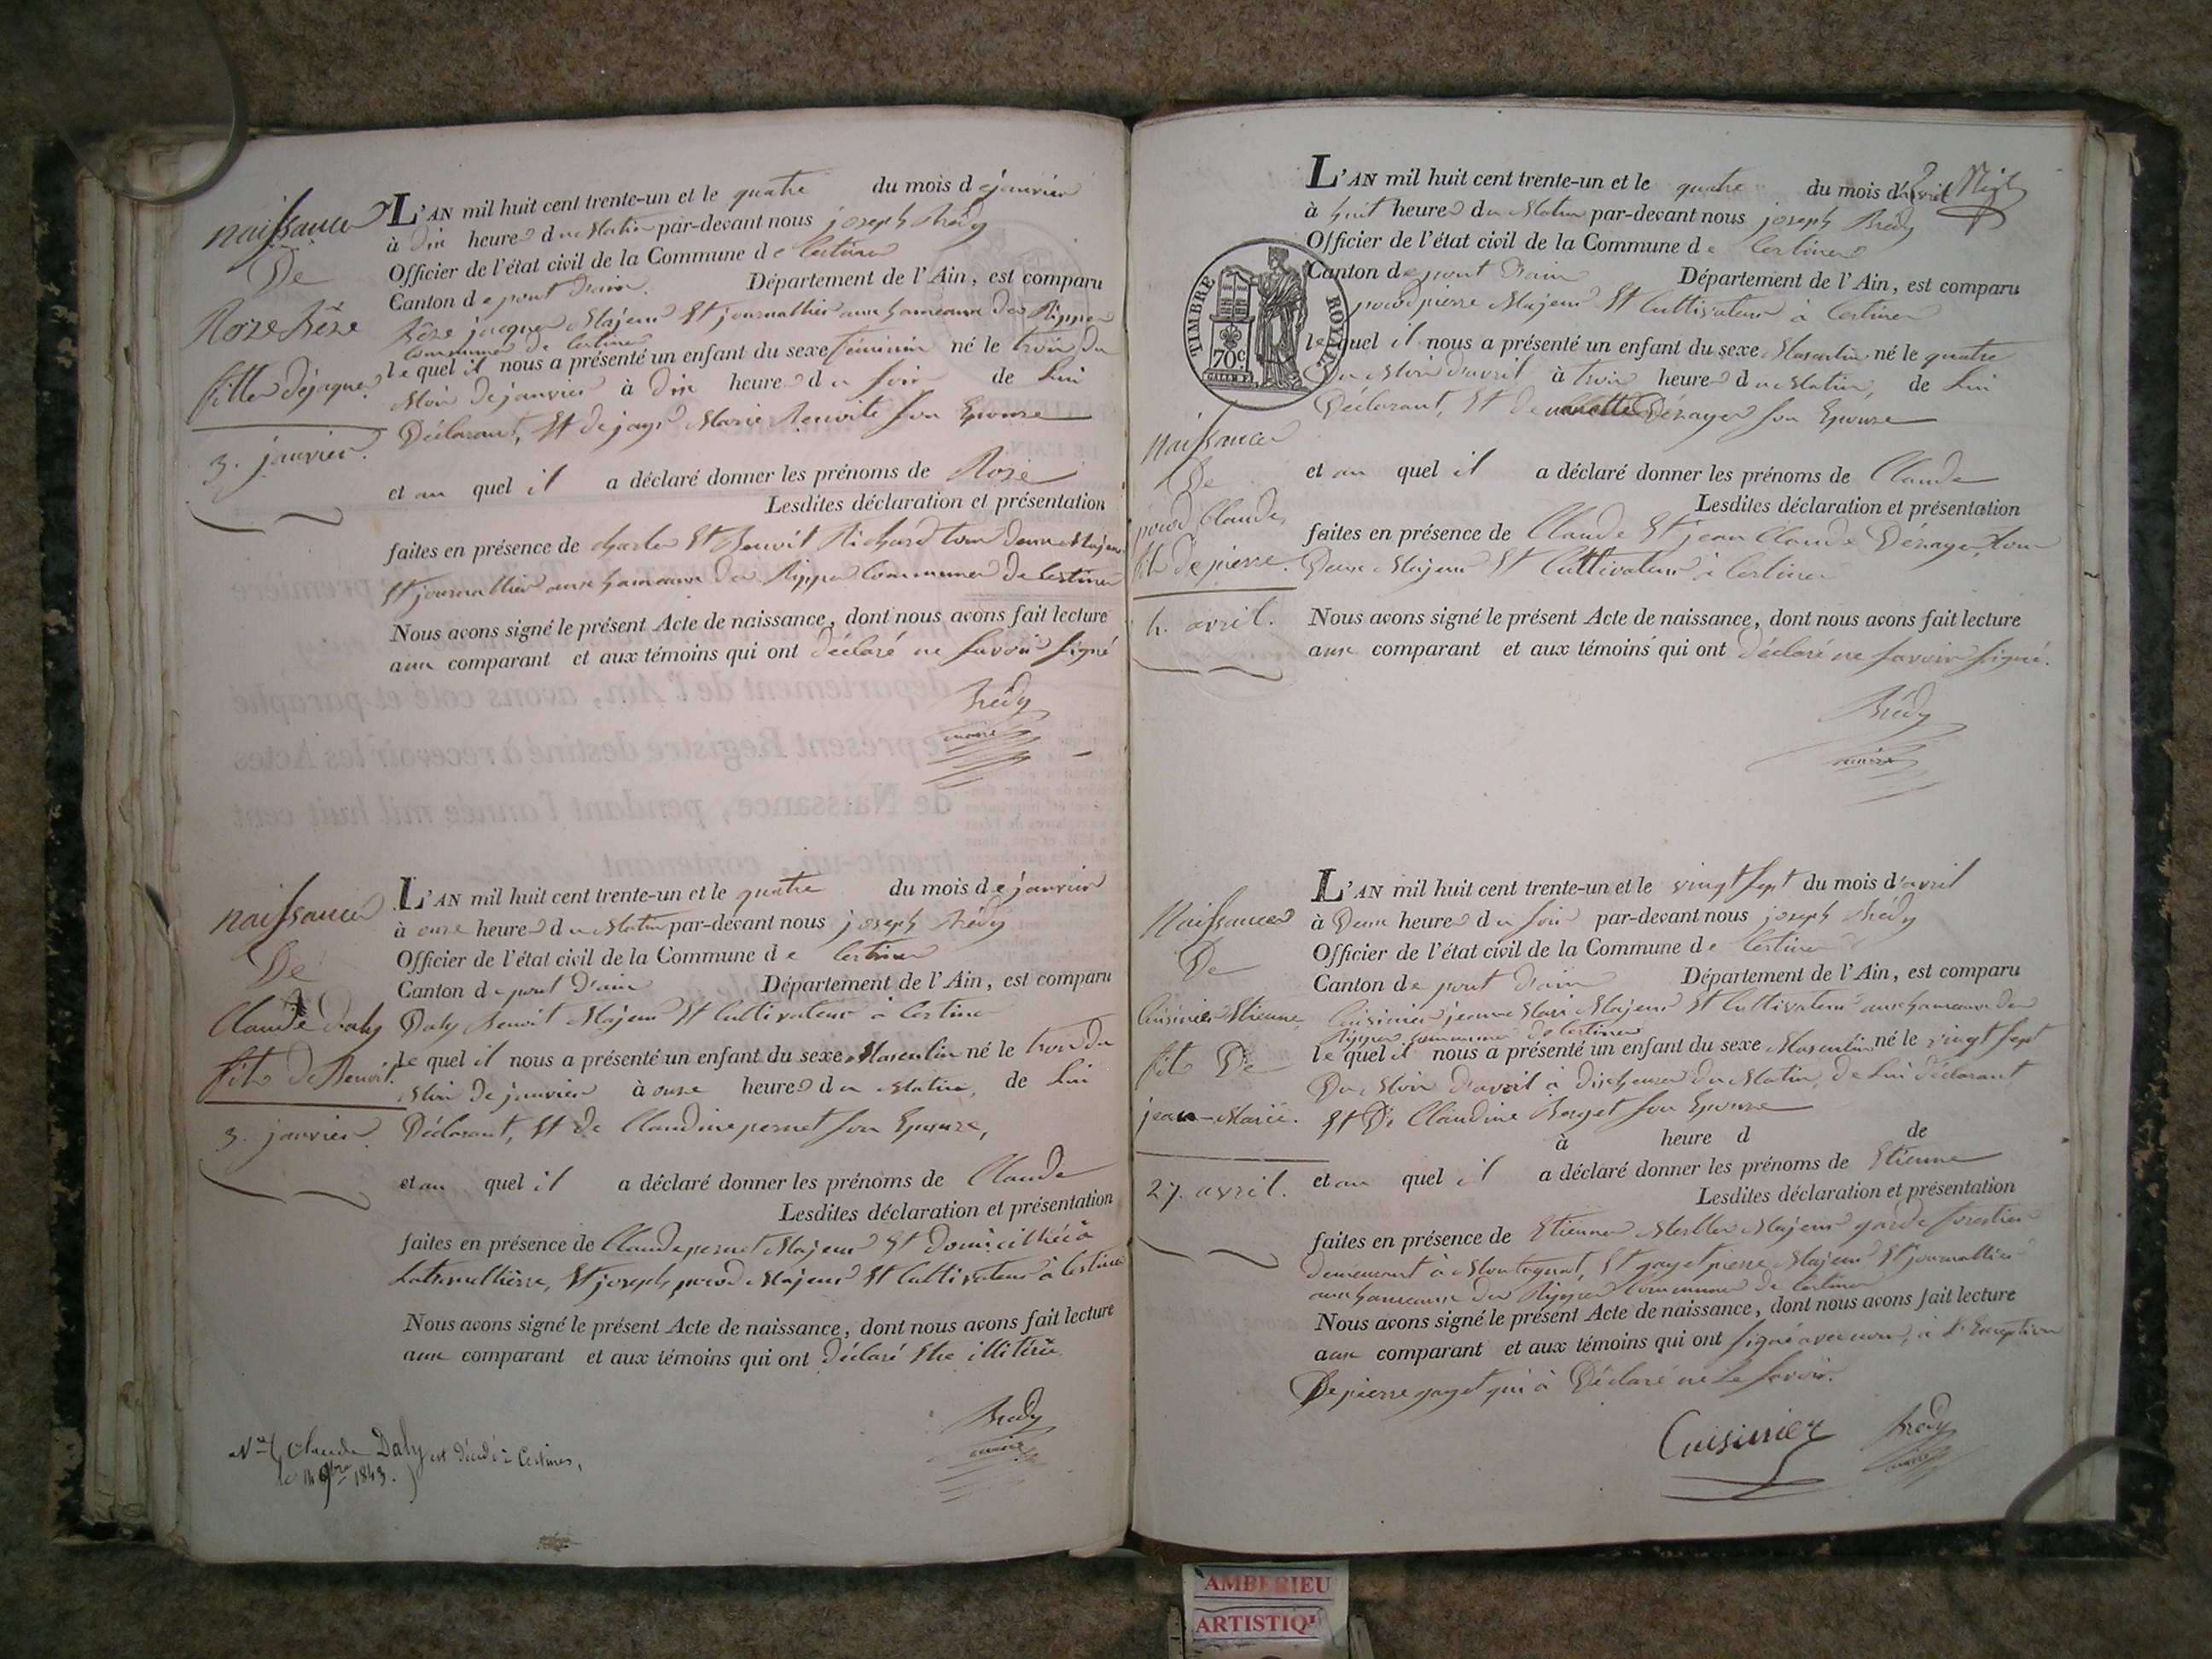 naissance
De
Roze Rêze
fille de jaque
3. janvier.
L'AN mil huit cent trente-un et le quatre du mois de janvier
à dix heures du Matin par-devant nous joseph Brédy
Officier de l'état civil de la Commune de Certines
Canton de pont d'ain. Département de l'Ain, est comparu
Rêze jacques Majeur Et journallier aux hameaux des Rippes
Commune de Certines
lequel il nous a présenté un enfant du sexe féminin né le trois du
Mois de janvier à dix heures du soir de Lui
Déclarant, Et de Marie Benoite son Epouse
et au quel il a déclaré donner les prénoms de Roze
Lesdites déclaration et présentation
faites en présence de charles Et Benoit Richard tous deux Majeurs
Et journallier aux hameaux des Rippes Commune de Certines
Nous avons signé le présent Acte de naissance, dont nous avons fait lecture
aux comparant et aux témoins qui ont déclaré ne savoir signé
Brédy
maire
naissance
De
Claude Daly
fils de Benoit.
3. janvier
L'AN mil huit cent trente-un et le quatre du mois de janvier
à onze heures du Matin par-devant nous joseph Brédy
Officier de l'état civil de la Commune de Certines
Canton de pont d'ain Département de l'Ain, est comparu
Daly Benoit Majeur Et Cultivateur à Certines
le quel il nous a présenté un enfant du sexe Masculin né le trois du
Mois de janvier à onze heures du Matin, de Lui
Déclarant, Et de Claudine pernet son Epouse,
et au quel il a déclaré donner les prénoms de Claude
Lesdites déclaration et présentation
faites en présence de Claude pernet Majeur Et domicillié à
Et joseph Majeur Et Cultivateur à Certines
Nous avons signé le présent Acte de naissance, dont nous avons fait lecture
aux comparant et aux témoins qui ont déclaré Etre illitérés
Brédy
maire
Claude Daly est décédé à Certines,
le 1843.
TIMBRE ROYAL
70 c
naissance
De
Claude,
fils de pierre.
4. avril.
L'AN mil huit cent trente-un et le quatre du mois d'avril
à huit heures du Matin par-devant nous joseph Brédy
Officier de l'état civil de la Commune de Certines
Canton de pont d'ain Département de l'Ain, est comparu
pierre Majeur Et Cultivateur à Certines
lequel il nous a présenté un enfant du sexe Masculin né le quatre
Du Mois d'avril à trois heures du Matin, de Lui
Déclarant, Et de son Epouse
et au quel il a déclaré donner les prénoms de Claude
Lesdites déclaration et présentation
faites en présence de Claude Et jean Claude tous
Deux Majeurs Et Cultivateurs à Certines
Nous avons signé le présent Acte de naissance, dont nous avons fait lecture
aux comparant et aux témoins qui ont déclaré ne savoir signé.
Brédy
maire
Naissance
De
Cuisinier Etienne,
fils De
jean-Marie.
27. avril.
L'AN mil huit cent trente-un et le vingt sept du mois d'avril
à Deux heures du soir par-devant nous joseph Brédy
Officier de l'état civil de la Commune de Certines
Canton de pont d'ain Département de l'Ain, est comparu
Cuisinier jean Marie Majeur Et Cultivateur aux hameaux des
Rippes Commune de Certines
lequel il nous a présenté un enfant du sexe Masculin né le vingt sept
Du Mois d'avril à dix heures du Matin, de Lui déclarant
Et De Claudine Berget son Epouse
à heure d de
et au quel il a déclaré donner les prénoms de Etienne
Lesdites déclaration et présentation
faites en présence de Etienne Majeur garde forestier
demeurant à Montagnat, Et gayet pierre Majeur Et journallier
aux hameaux des Rippes Commune de Certines
Nous avons signé le présent Acte de naissance, dont nous avons fait lecture
aux comparant et aux témoins qui ont signé avec nous, à l'Exception
De pierre gayet qui à Déclaré ne le savoir.
Cuisinier Brédy
maire
AMBERIEU
ARTISTIQU